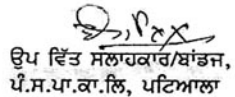 ਉਪ ਵਿੱਤ ਸਲਾਹਕਾਰ/ਬਾਂਡਜ,
ਪੰ.ਸ.ਪਾ.ਕਾ.ਲਿ, ਪਟਿਆਲਾ